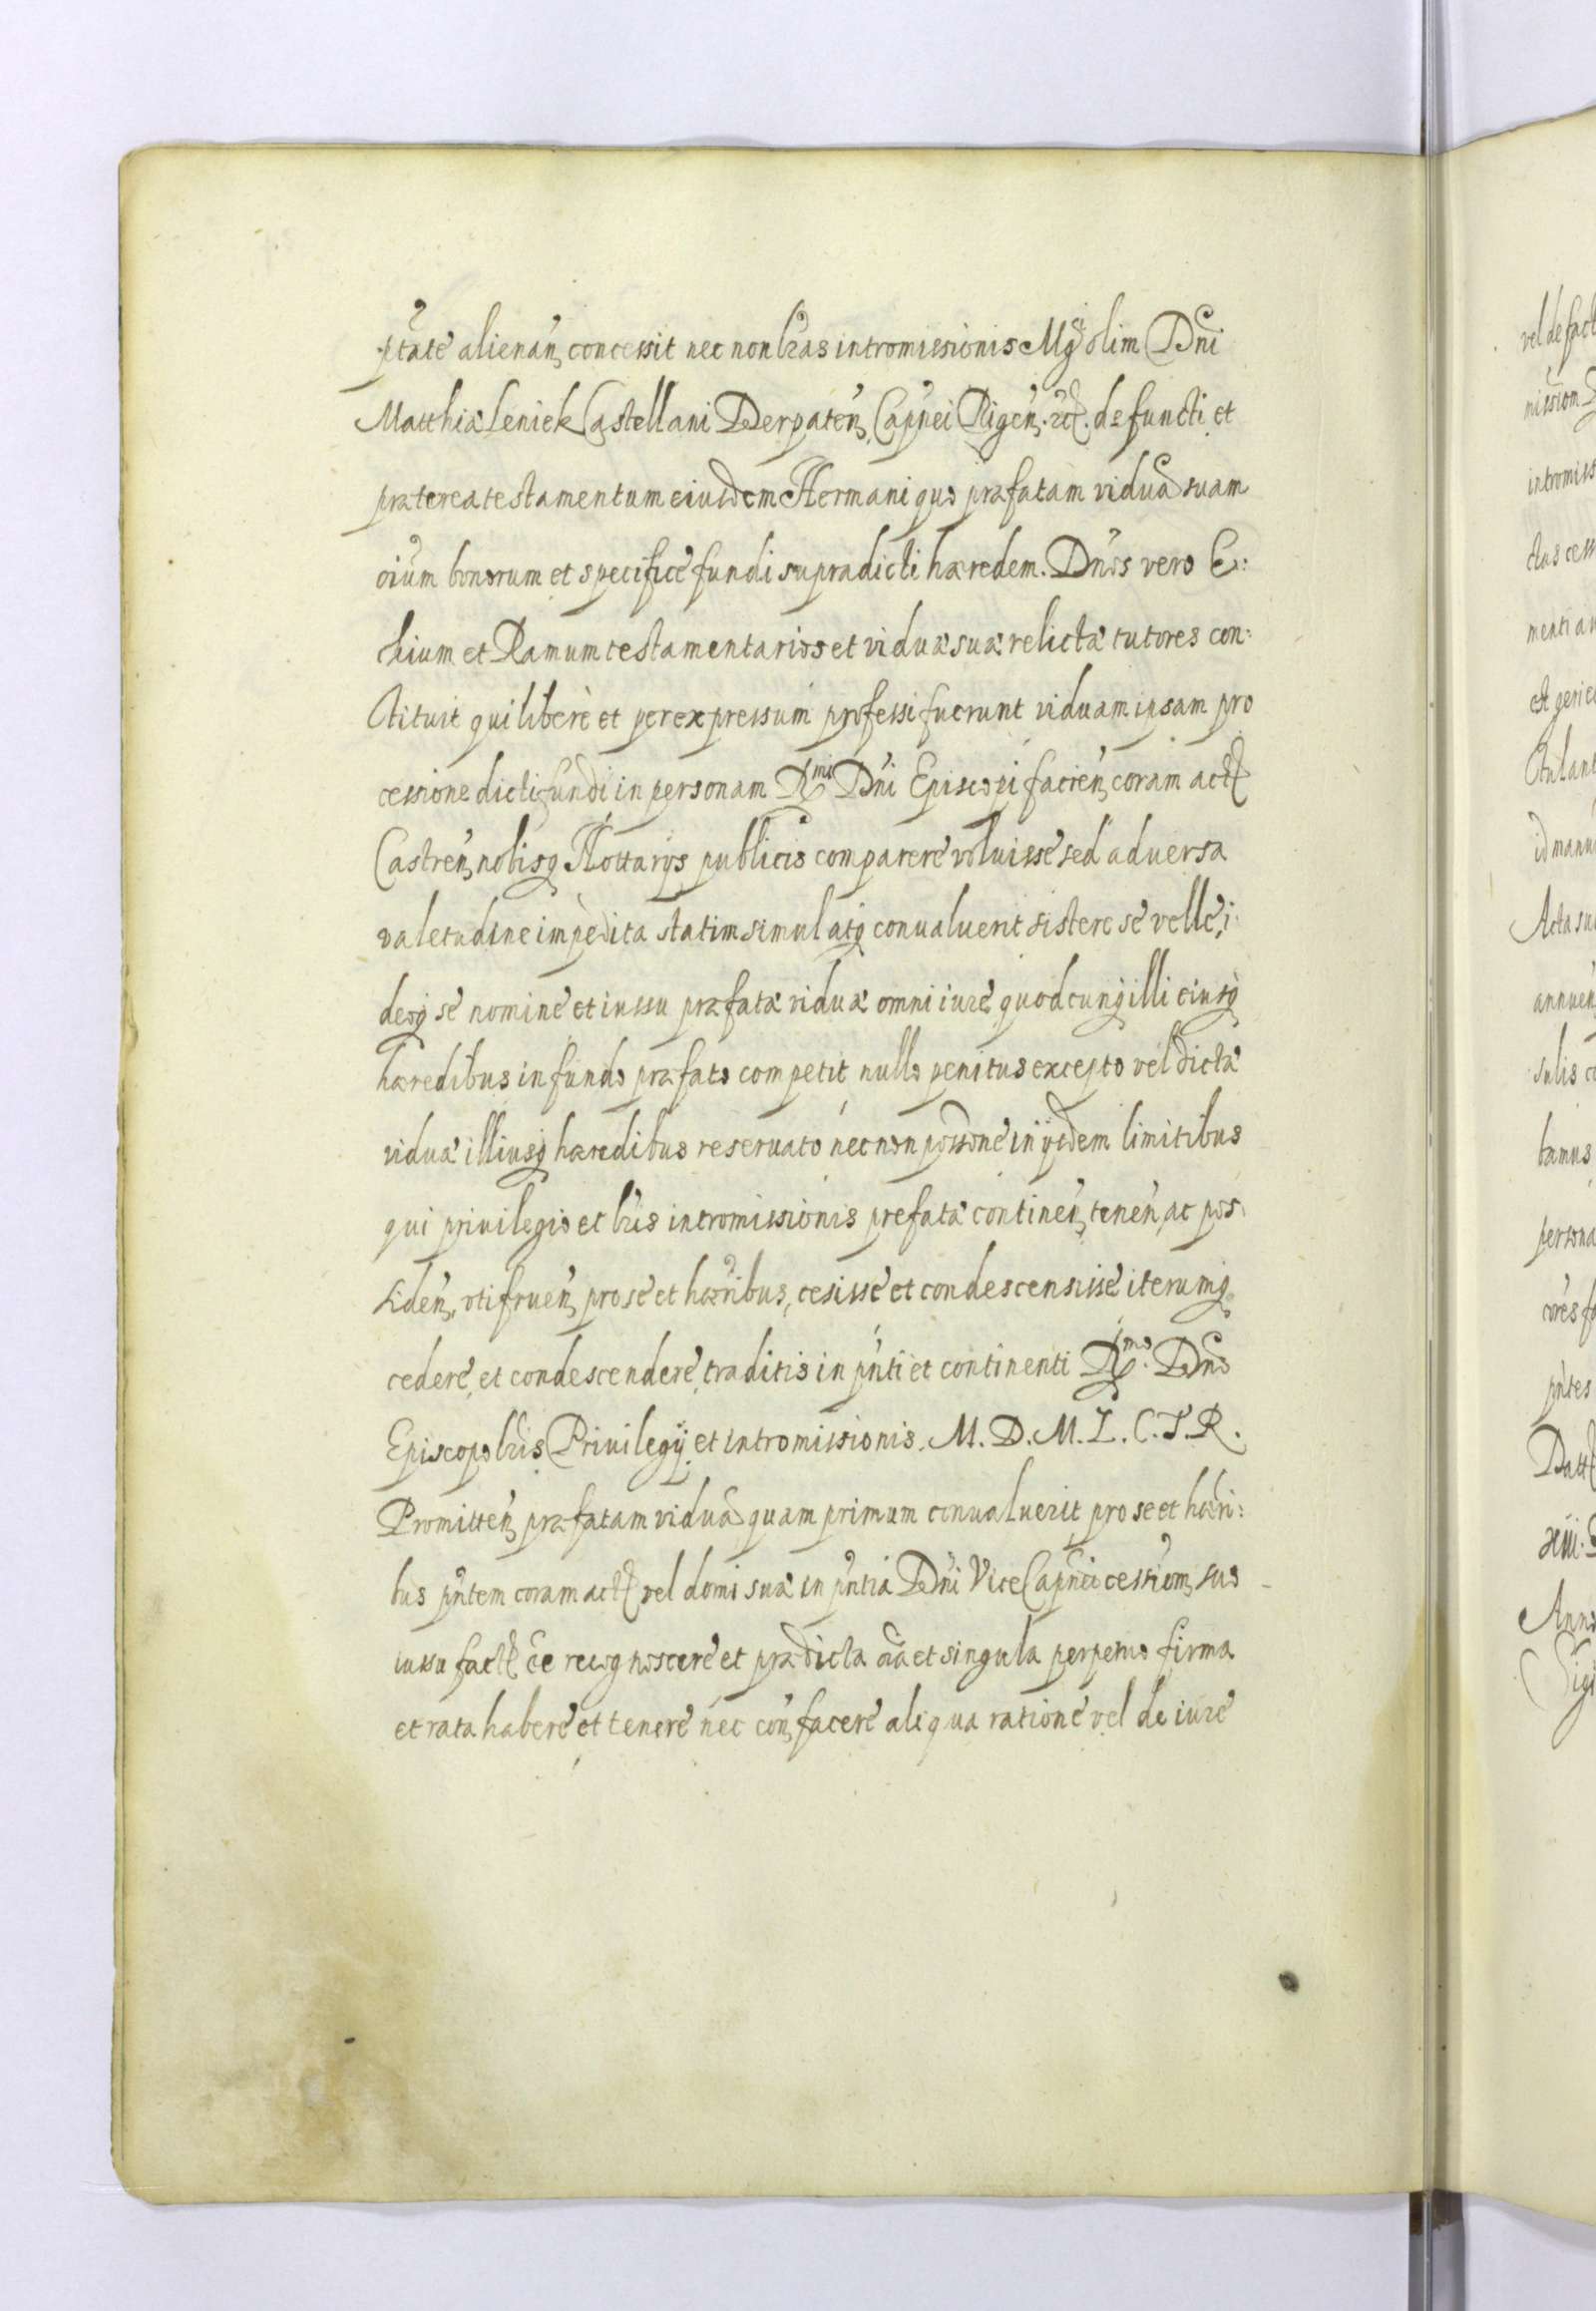 ptate alienan, concessit nec non lras intromissionis Mgci olim Dni
Matthiæ Leniek Castellani Derpaten, Capnei Rigen. etc. defuncti et
præterea testamentum eiusdem Hermani quo præfatam viduā suam
oium bonorum et specifice fundi supradicti hæredem. Dnos vero E:
chium et Ramum testamentarios et viduæ suæ relictæ tutores con:
stituit qui liberè et per expressum professi fuerunt viduam ipsam pro
cessione dicti fundi in personam Rmi Dni Episcopi facien, coram act
Castren, nobisq Nottarijs publicis comparere voluisse sed aduersa
valetudine impedita statim simul atq conualuerit sistere se velle, i:
deoq se nomine et iussu præfatæ viduæ omni iure quodcunq illi eiusq
hæredibus in fundo præfato competit nullo penitus excepto vel dictæ
viduæ illiusq hæredibus reseruato nec non possone in ijsdem limitibus
qui priuilegio et lris intromissionis prefatæ continen, tenen, ac pos:
siden, vti fruen, pro se et hæribus, cesisse et condescensisse iterumq
cedere, et condescendere, traditis in pnti et continenti Rmo. Dno
Episcopo lris Priuilegij et intromissionis. M. D. M. L. C. T. R.
Promitten, præfatam viduā quam primum conualuerit pro se et hæri:
bus pntem coram act vel domi suæ in pntia Dni Vice Capnei cessiom suo
iussu fact ee recognoscere et prædicta oia et singula perpetuo firma
et rata habere et tenere nec con, facere aliqua ratione vel de iure